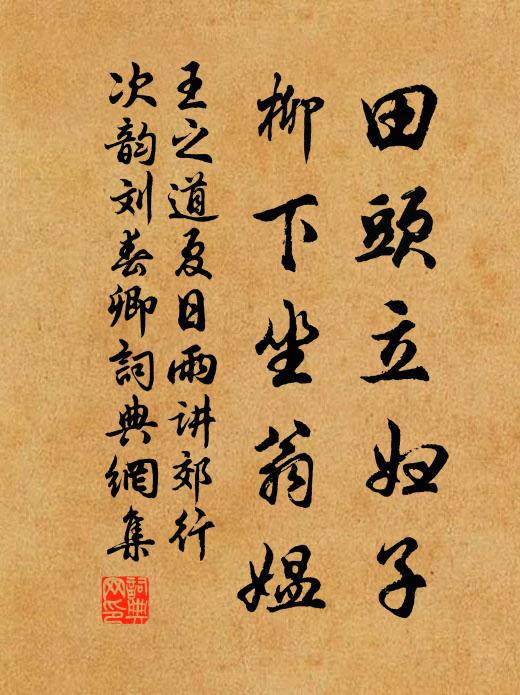 田頭立妇子
柳下坐翁媼
王之道夏日雨讲郊行
次韵刘春卿詞典網集
詞典
网印